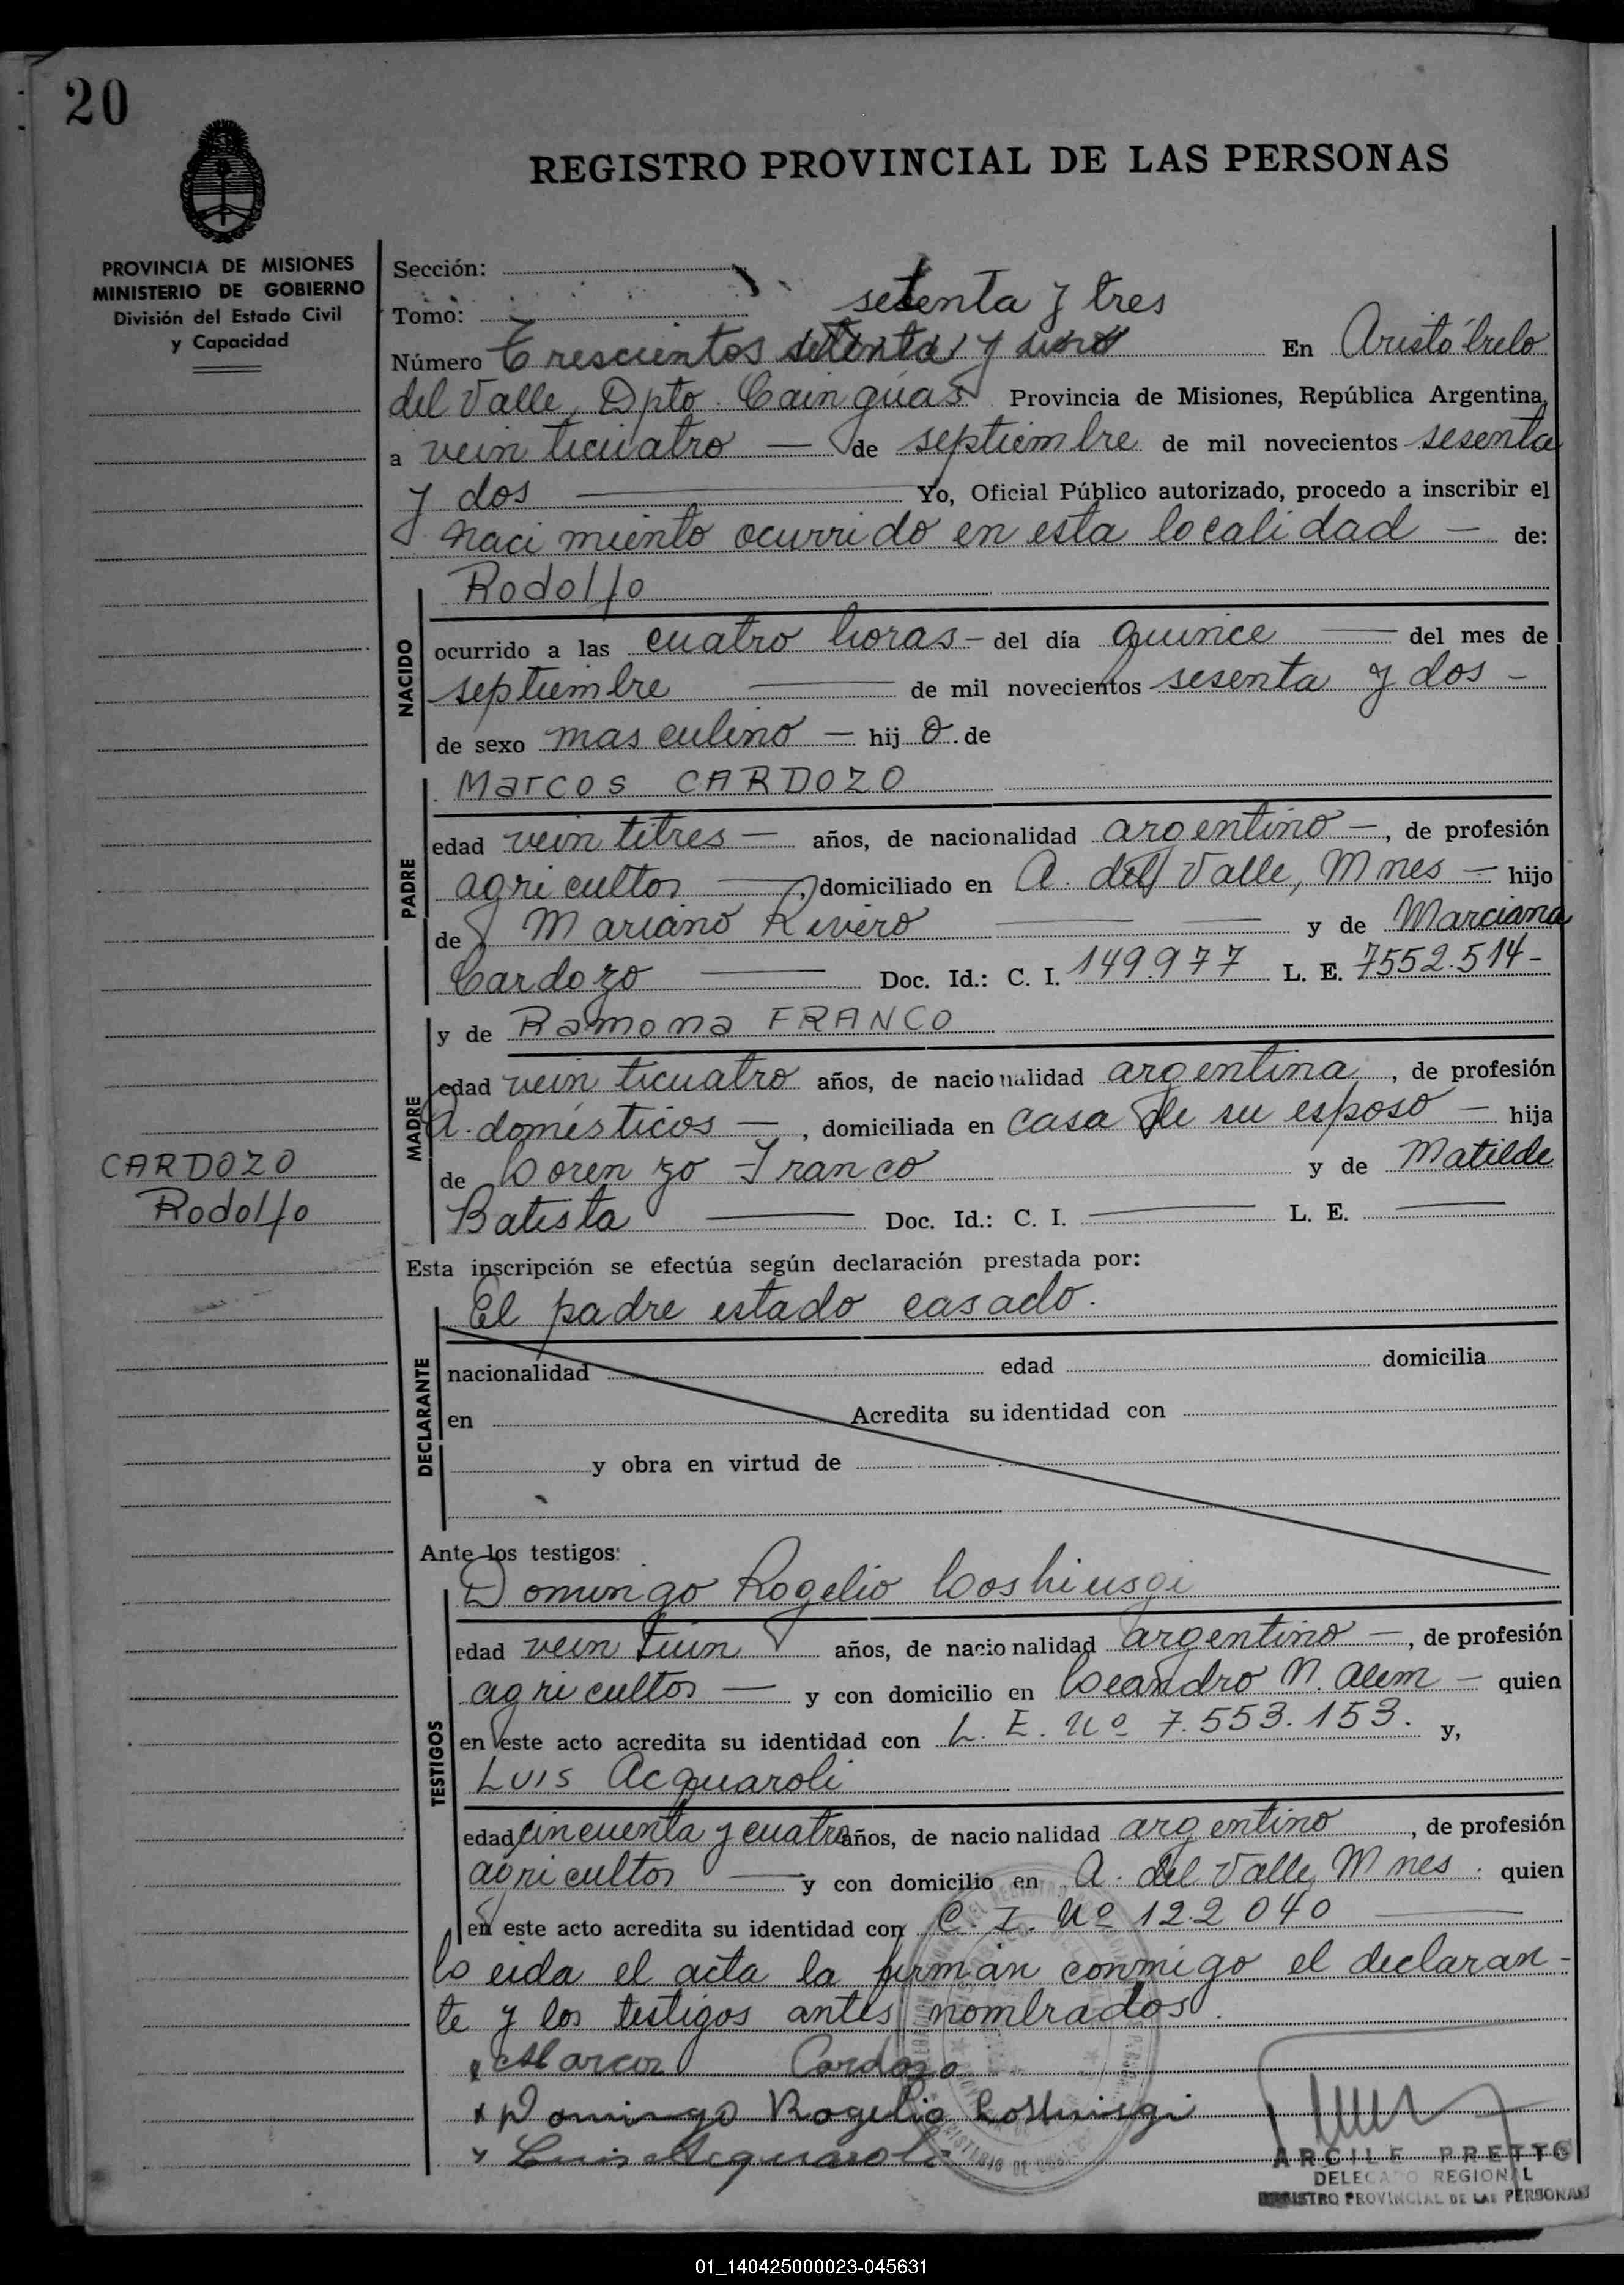 20
REGISTRO PROVINCIAL DE LAS PERSONAS
PROVINCIA DE MISIONES
MINISTERIO DE GOBIERNO
División del Estado Civil
y Capacidad
Sección:
Tomo: setenta y tres
Número Trescientos setenta y uno En Aristóbulo
del Valle, Dpto. Cainguás Provincia de Misiones, República Argentina,
a veinticuatro — de septiembre de mil novecientos sesenta
y dos — Yo, Oficial Público autorizado, procedo a inscribir el
nacimiento ocurrido en esta localidad — de:
Rodolfo
NACIDO
ocurrido a las cuatro horas - del día quince — del mes de
septiembre — de mil novecientos sesenta y dos -
de sexo masculino — hijo de
Marcos CARDOZO
PADRE
edad veintitres — años, de nacionalidad argentino —, de profesión
agricultor —, domiciliado en A. del Valle, Mnes — hijo
de Mariano Rivero — — y de Marciana
Cardozo — Doc. Id.: C. I. 149977 L. E. 7552.514-
y de Ramona FRANCO
MADRE
edad veinticuatro años, de nacionalidad argentina, de profesión
Q. domésticos —, domiciliada en casa de su esposo — hija
de Lorenzo Franco y de Matilde
Batista — Doc. Id.: C. I. — L. E. —
CARDOZO
Rodolfo
Esta inscripción se efectúa según declaración prestada por:
El padre estado casado.
DECLARANTE
nacionalidad edad domicilia
en Acredita su identidad con
y obra en virtud de
Ante los testigos:
Domingo Rogelio
TESTIGOS
edad veintiún años, de nacionalidad argentino —, de profesión
agricultor — y con domicilio en Leandro N. Alem — quien
en este acto acredita su identidad con L. E. Nº 7.553.153. y,
LUIS Acquaroli
edad cincuenta y cuatro años, de nacionalidad argentino, de profesión
agricultor — y con domicilio en A. del Valle, Mnes. quien
en este acto acredita su identidad con C. I. Nº 122040 —
Leida el acta la firman conmigo el declaran-
te y los testigos antes nombrados.
Marcos Cardozo
x Domingo Rogelio
x Luis Acquaroli
ARGILE PRETTO
DELEGADO REGIONAL
REGISTRO PROVINCIAL DE LAS PERSONAS
01_140425000023-045631